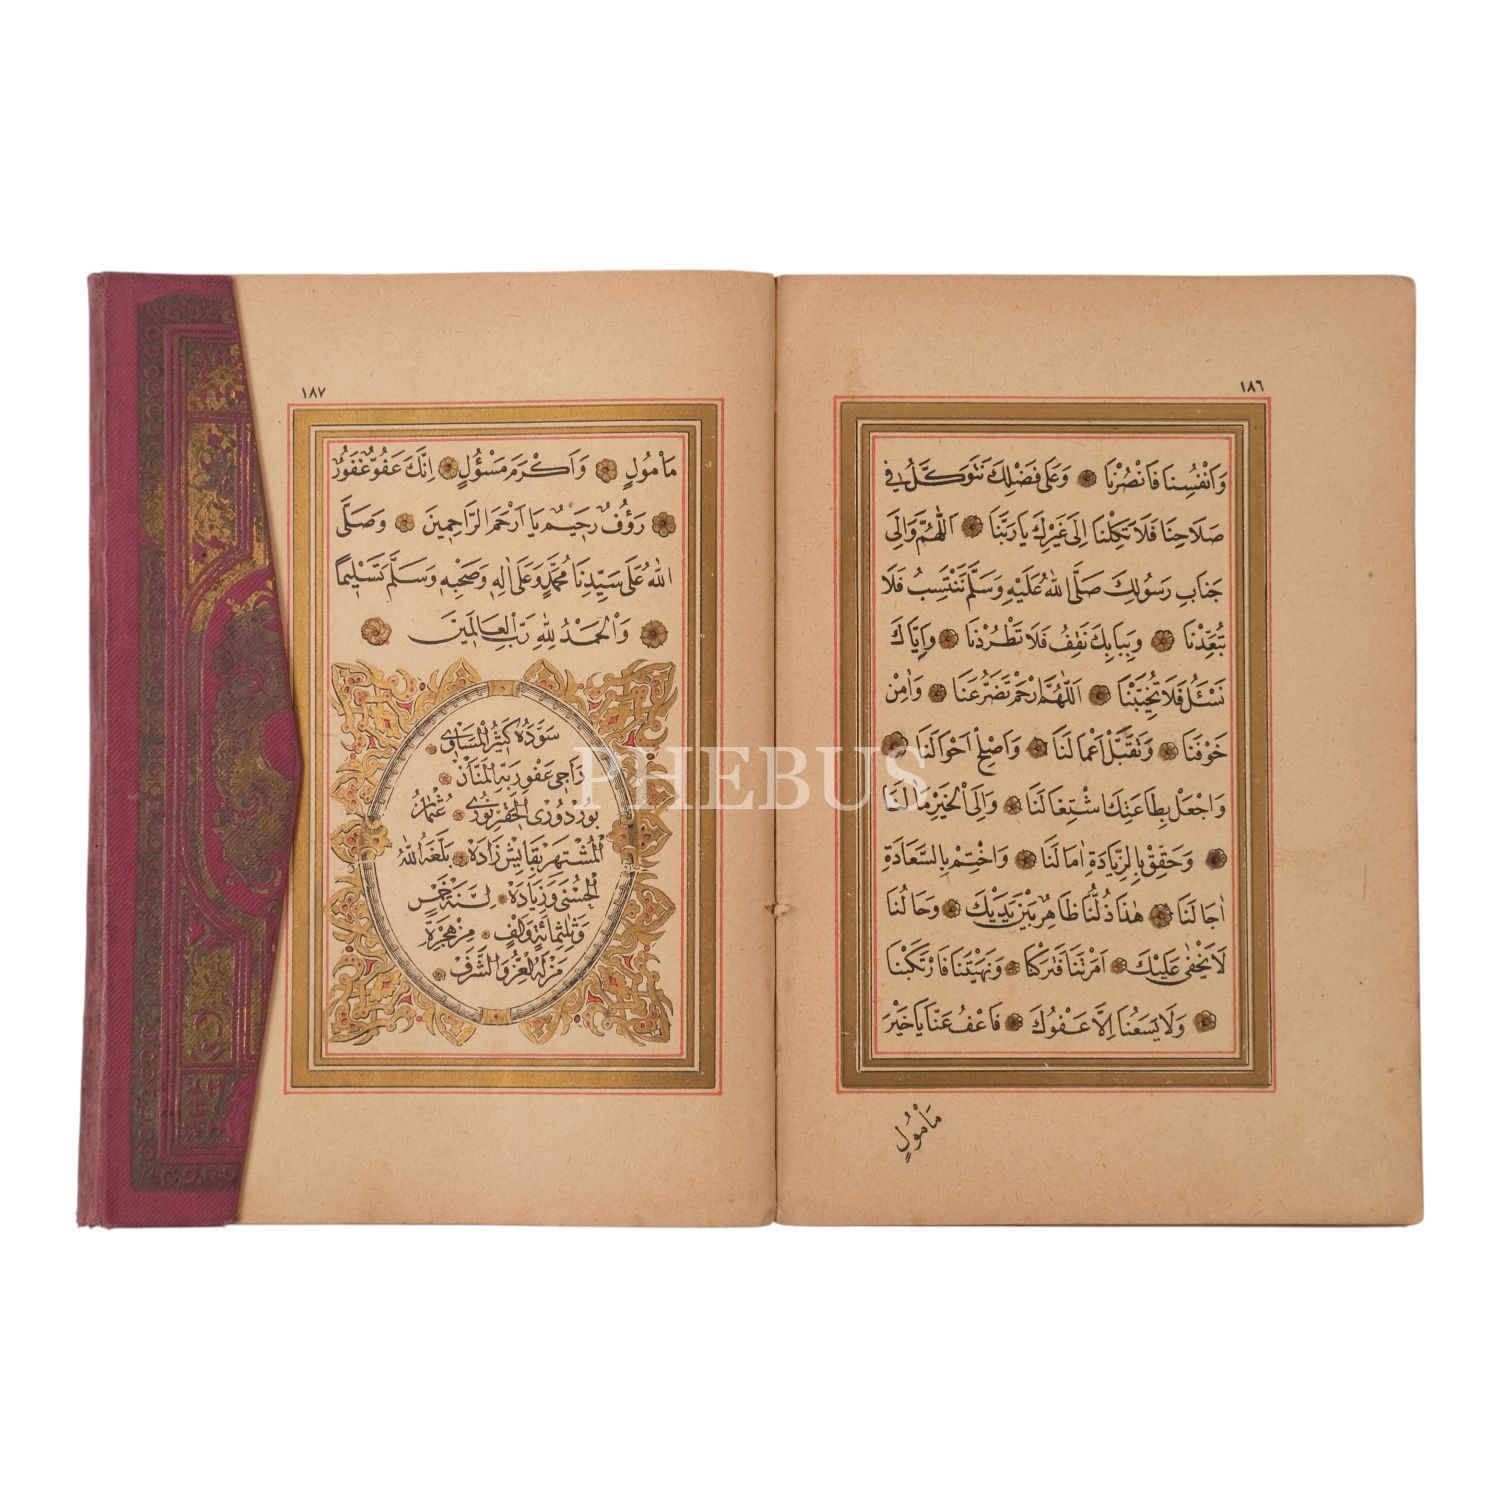 ١٨٦
وَاَنْفُسِنَا فَانْصُرْنَا وَعَلٰى فَضْلِكَ نَتَوَكَّلُ فِي
صَلَاحِنَا فَلَا تَكِلْنَا اِلٰى غَيْرِكَ يَا رَبَّنَا اَللّٰهُمَّ وَاِلٰى
جَنَابِ رَسُولِكَ صَلَّى اللّٰهُ عَلَيْهِ وَسَلَّمَ نَنْتَسِبُ فَلَا
تُبَعِّدْنَا وَبِبَابِكَ نَقِفُ فَلَا تَطْرُدْنَا وَاِيَّاكَ
نَسْئَلُ فَلَا تُخَيِّبْنَا اَللّٰهُمَّ ارْحَمْ تَضَرُّعَنَا وَاٰمِنْ
خَوْفَنَا وَتَقَبَّلْ اَعْمَالَنَا وَاَصْلِحْ اَحْوَالَنَا
وَاجْعَلْ بِطَاعَتِكَ اشْتِغَالَنَا وَاِلَى الْخَيْرِ مَاٰلَنَا
وَحَقِّقْ بِالزِّيَادَةِ اٰمَالَنَا وَاخْتِمْ بِالسَّعَادَةِ
اٰجَالَنَا هٰذَا ذُلُّنَا ظَاهِرٌ بَيْنَ يَدَيْكَ وَحَالُنَا
لَا يَخْفٰى عَلَيْكَ اَمَرْتَنَا فَتَرَكْنَا وَنَهَيْتَنَا فَارْتَكَبْنَا
وَلَا يَسَعُنَا اِلَّا عَفْوُكَ فَاعْفُ عَنَّا يَا خَيْرَ
مَاْمُولٍ
١٨٧
مَاْمُولٍ وَاَكْرَمَ مَسْؤُلٍ اِنَّكَ عَفُوٌّ غَفُورٌ
رَؤُفٌ رَحِيمٌ يَا اَرْحَمَ الرَّاحِمِينَ وَصَلَّى
اللّٰهُ عَلٰى سَيِّدِنَا مُحَمَّدٍ وَعَلٰى اٰلِهِ وَصَحْبِهِ وَسَلَّمَ تَسْلِيمًا
وَالْحَمْدُ لِلّٰهِ رَبِّ الْعَالَمِينَ
سَوَّدَهُ كَثِيرُ الْمَسَاوِي
رَاجِي عَفْوِ رَبِّهِ الْمَنَّانِ
بوردورى الحَقِير نورى عُثْمَانُ
الْمُشْتَهِرُ بِقَايِش زَادَه بَلَّغَهُ اللّٰهُ
الْحُسْنٰى وَزِيَادَة لِسَنَةِ خَمْسٍ
وَثَلٰثِمِائَةٍ وَاَلْفٍ مِنْ هِجْرَةِ
مَنْ لَهُ الْعِزُّ وَالشَّرَفُ
PHEBUS